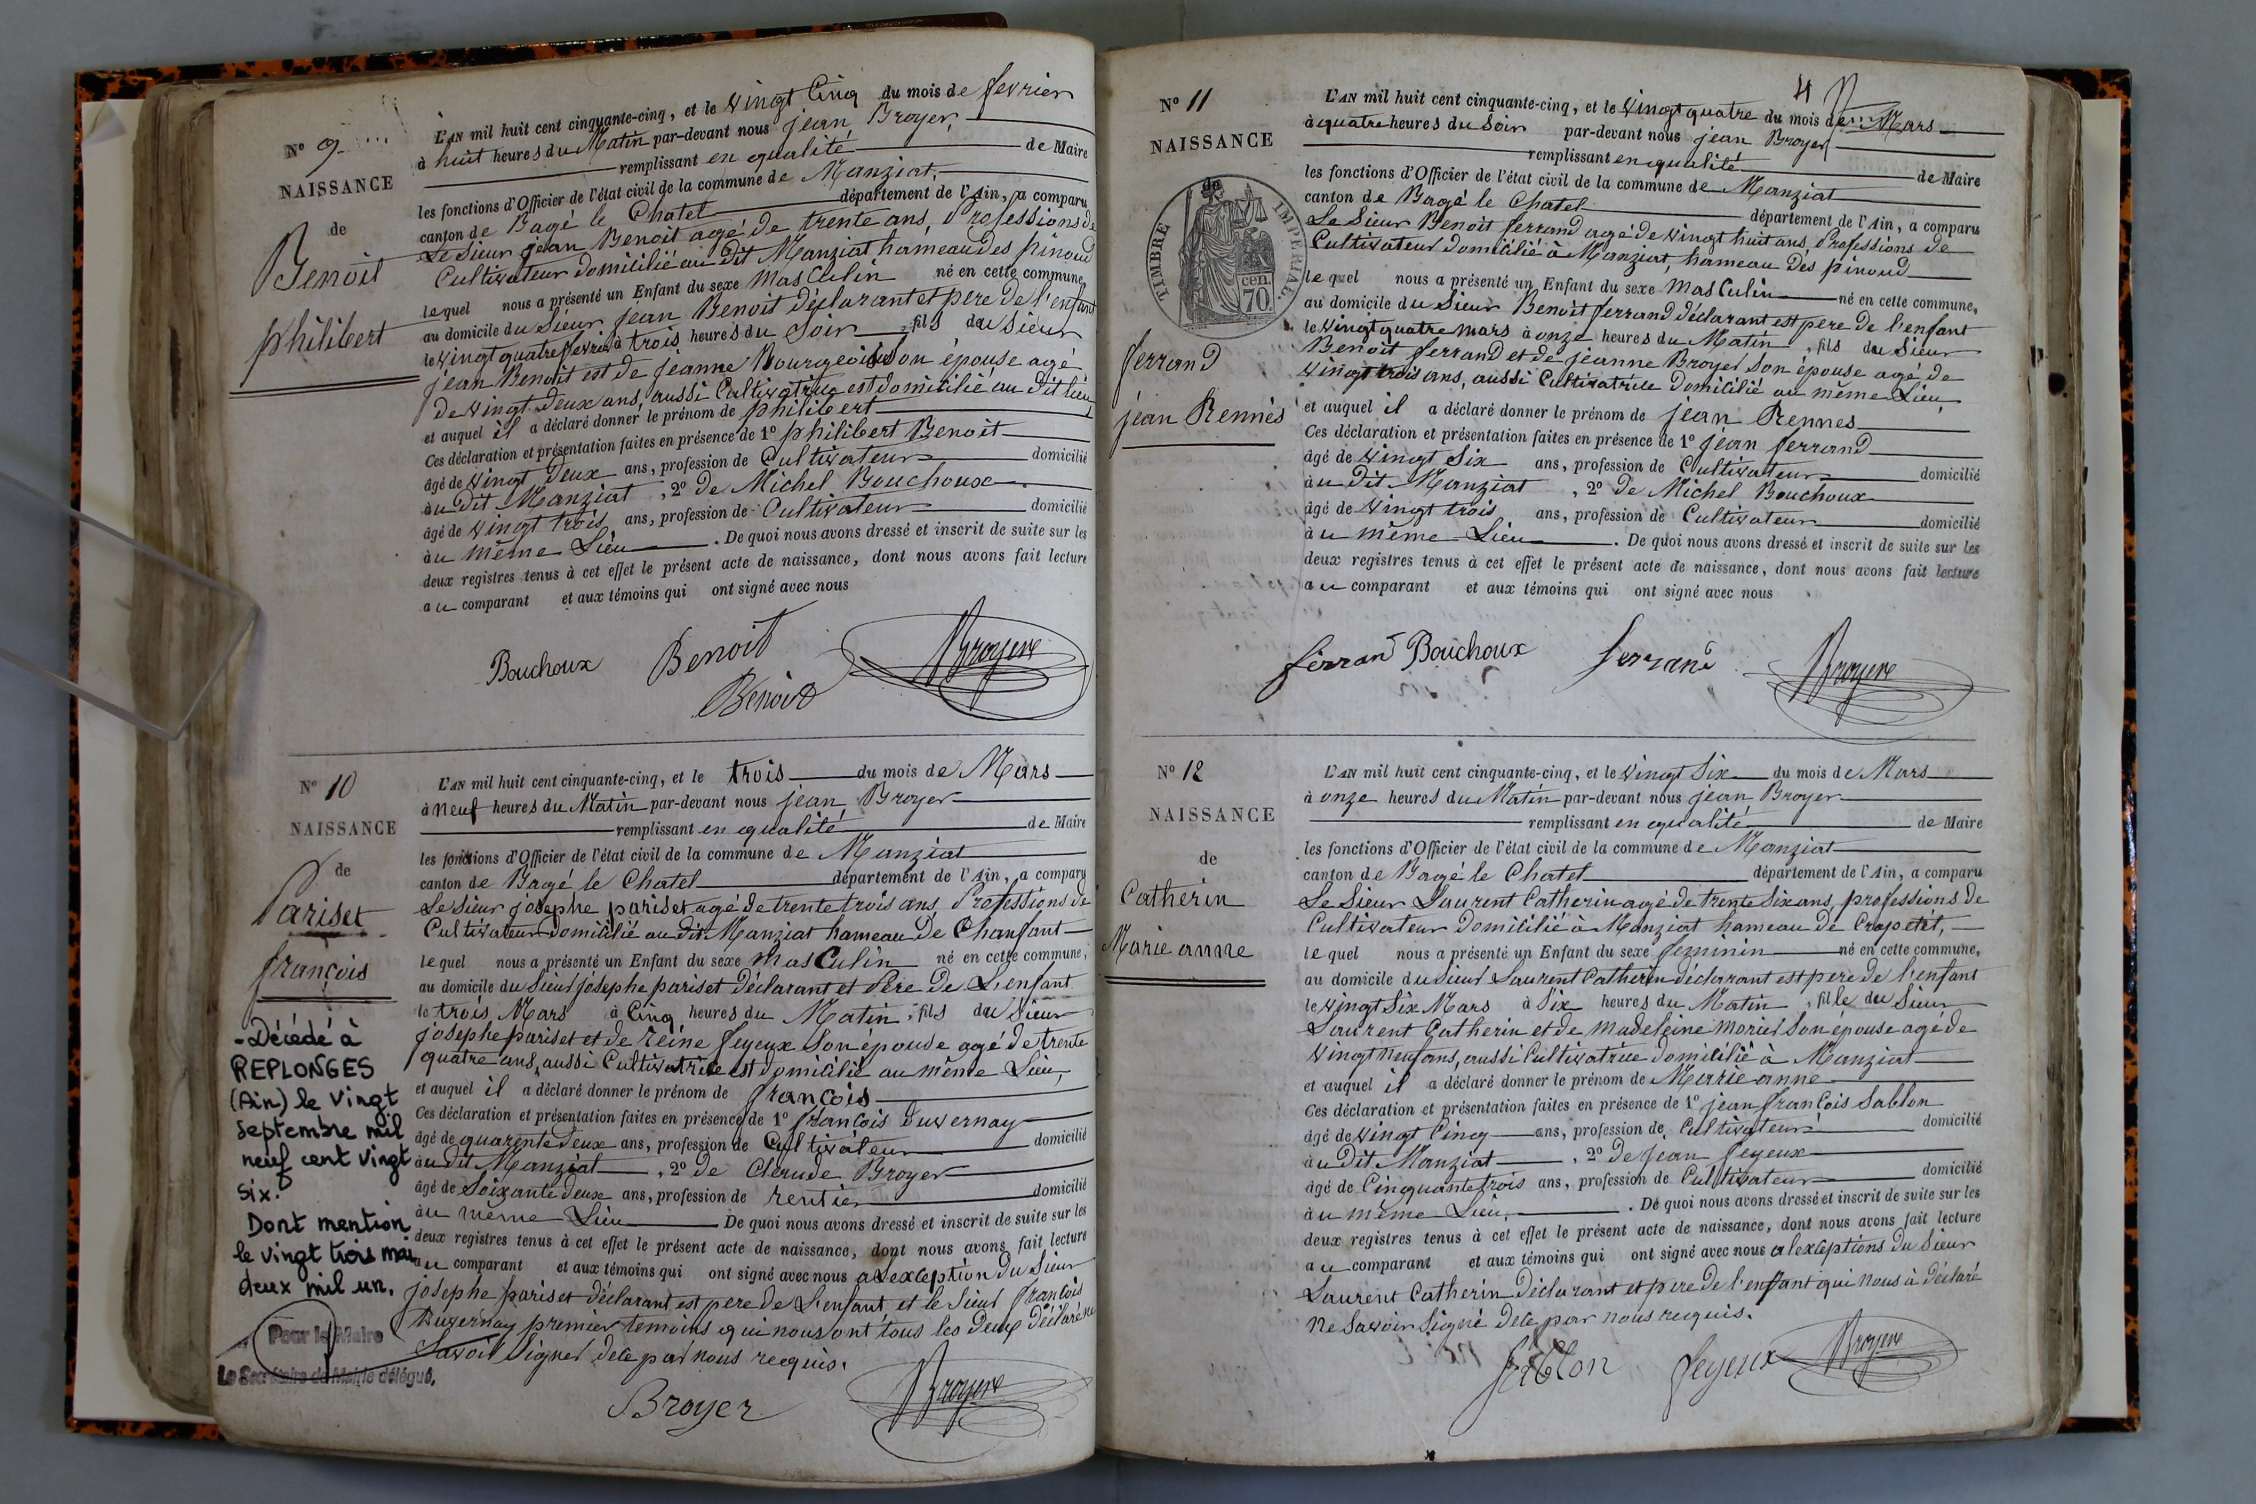 N° 9
NAISSANCE
de
Benoit
philibert
L'AN mil huit cent cinquante-cinq, et le Vingt Cinq du mois de fevrier
à huit heures du Matin par-devant nous jean Broyer,
remplissant en qualité de Maire
les fonctions d'Officier de l'état civil de la commune de Manziat,
canton de Bagé le Chatel département de l'Ain, a comparu
Le Sieur jean Benoit agé de trente ans, Professions de
Cultivateur domicilié au dit Manziat hameau des pinoud
lequel nous a présenté un Enfant du sexe masculin né en cette commune,
au domicile du Sieur jean Benoit déclarant et pere de l'enfant
le vingt quatre fevrier à trois heures du Soir, fils du Sieur
jean Benoit est de jeanne Bourgeois Son épouse agé
de vingt deux ans, aussi Cultivatrice est domicilié au dit lieu,
et auquel il a déclaré donner le prénom de philibert
Ces déclaration et présentation faites en présence de 1° philibert Benoit
âgé de vingt deux ans, profession de Cultivateur domicilié
au Dit Manziat, 2° de Michel Bouchoux
âgé de vingt trois ans, profession de Cultivateur domicilié
au même Lieu. De quoi nous avons dressé et inscrit de suite sur les
deux registres tenus à cet effet le présent acte de naissance, dont nous avons fait lecture
au comparant et aux témoins qui ont signé avec nous
Bouchoux Benoit Broyer
Benoit
N° 10
NAISSANCE
de
Pariset
françois
- Décédé à
REPLONGES
(Ain) le vingt
septembre mil
neuf cent vingt
six.
Dont mention
le vingt trois mai
deux mil un.
Pour le Maire
Le Secrétaire de Mairie délégué,
L'AN mil huit cent cinquante-cinq, et le trois du mois de Mars
à neuf heures du Matin par-devant nous jean Broyer
remplissant en qualité de Maire
les fonctions d'Officier de l'état civil de la commune de Manziat
canton de Bagé le Chatel département de l'Ain, a comparu
Le Sieur josephe pariset agé de trente trois ans, Professions de
Cultivateur domicilié au dit Manziat hameau de Chanfant
lequel nous a présenté un Enfant du sexe masculin né en cette commune,
au domicile du Sieur josephe pariset déclarant et Pére de L'enfant
le trois Mars à Cinq heures du Matin, fils du Sieur
josephe pariset et de reine feyeux Son epouse agé de trente
quatre ans, aussi Cultivatrice est domicilié au même Lieu,
et auquel il a déclaré donner le prénom de françois
Ces déclaration et présentation faites en présence de 1° françois Duvernay
âgé de quarente deux ans, profession de Cultivateur domicilié
au dit Manziat, 2° de Claude Broyer
âgé de Soixante deux ans, profession de rentier domicilié
au même Lieu De quoi nous avons dressé et inscrit de suite sur les
deux registres tenus à cet effet le présent acte de naissance, dont nous avons fait lecture
au comparant et aux témoins qui ont signé avec nous a Lexception du Sieur
josephe pariset déclarant est pere de L'enfant et le Sieur françois
Duvernay premier temoins qui nous ont tous les deux déclaré ne
Savoir Signer de ce par nous recquis.
Broyer Broyer
4
N° 11
NAISSANCE
de
TIMBRE IMPERIAL.
70 cen.
ferrand
jean Rennés
L'AN mil huit cent cinquante-cinq, et le vingt quatre du mois de Mars
à quatre heures du Soir par-devant nous jean Broyer
remplissant en qualité de Maire
les fonctions d'Officier de l'état civil de la commune de Manziat
canton de Bagé le Chatel département de l'Ain, a comparu
Le Sieur Benoit ferrand agé de vingt huit ans, Professions de
Cultivateur domicilié à Manziat, hameau des pinoud
lequel nous a présenté un Enfant du sexe masculin né en cette commune,
au domicile du Sieur Benoit ferrand déclarant est pere de l'enfant
le vingt quatre mars à onze heures du Matin, fils du Sieur
Benoit ferrand et de jeanne Broyer Son épouse agé de
vingt trois ans, aussi Cultivatrice domicilié au même Lieu,
et auquel il a déclaré donner le prénom de jean Rennes
Ces déclaration et présentation faites en présence de 1° jean ferrand
âgé de vingt Six ans, profession de Cultivateur domicilié
au Dit Manziat, 2° de Michel Bouchoux
âgé de vingt trois ans, profession de Cultivateur domicilié
au même Lieu. De quoi nous avons dressé et inscrit de suite sur les
deux registres tenus à cet effet le présent acte de naissance, dont nous avons fait lecture
au comparant et aux témoins qui ont signé avec nous
ferrand Bouchoux ferrand Broyer
N° 12
NAISSANCE
de
Catherin
Marie anne
L'AN mil huit cent cinquante-cinq, et le vingt Six du mois de Mars
à onze heures du Matin par-devant nous jean Broyer
remplissant en qualité de Maire
les fonctions d'Officier de l'état civil de la commune de Manziat
canton de Bagé le Chatel département de l'Ain, a comparu
Le Sieur Laurent Catherin agé de trente Six ans, professions de
Cultivateur domicilié à Manziat hameau de Crapetet,
lequel nous a présenté un Enfant du sexe feminin né en cette commune,
au domicile du Sieur Laurent Catherin déclarant est pere de l'enfant
le vingt Six Mars à Six heures du Matin, fille du Sieur
Laurent Catherin et de madeleine moriel Son épouse agé de
vingt neuf ans, aussi Cultivatrice domicilié à Manziat
et auquel il a déclaré donner le prénom de Marie anne
Ces déclaration et présentation faites en présence de 1° jean françois Sablon
âgé de vingt Cinq ans, profession de Cultivateur domicilié
au Dit Manziat, 2° de jean feyeux
âgé de Cinquante trois ans, profession de Cultivateur domicilié
au même Lieu,. De quoi nous avons dressé et inscrit de suite sur les
deux registres tenus à cet effet le présent acte de naissance, dont nous avons fait lecture
au comparant et aux témoins qui ont signé avec nous a lexceptions du Sieur
Laurent Catherin déclarant et pere de l'enfant qui nous à déclaré
ne Savoir Signé de ce par nous recquis.
Sablon feyeux Broyer